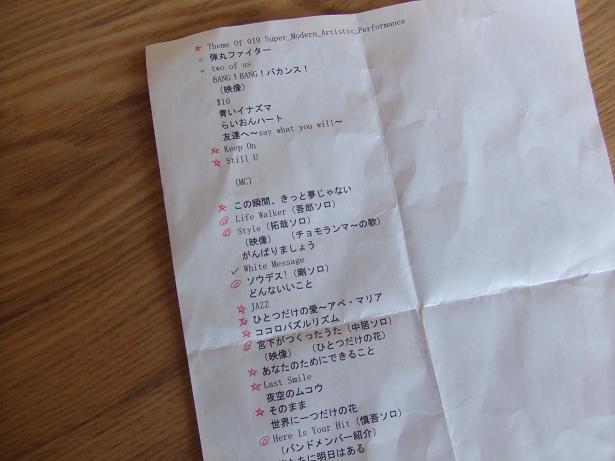 Theme Of 019 Super_Modern_Artistic_Performance
弾丸ファイター
two of us
BANG！BANG！バカンス！
（映像）
$10
青いイナズマ
らいおんハート
友達へ～say what you will～
Keep On
Still U
(MC)
この瞬間、きっと夢じゃない
Life Walker（吾郎ソロ）
Style（拓哉ソロ）
（映像）　（チョモランマ～の歌）
がんばりましょう
White Message
ソウデス！（剛ソロ）
どんないいこと
JAZZ
ひとつだけの愛～アベ・マリア
ココロパズルリズム
宮下がつくったうた（中居ソロ）
（映像）　（ひとつだけの花）
あなたのためにできること
Last Smile
夜空のムコウ
そのまま
世界に一つだけの花
Here Is Your Hit（慎吾ソロ）
（バンドメンバー紹介）
たに明日はある